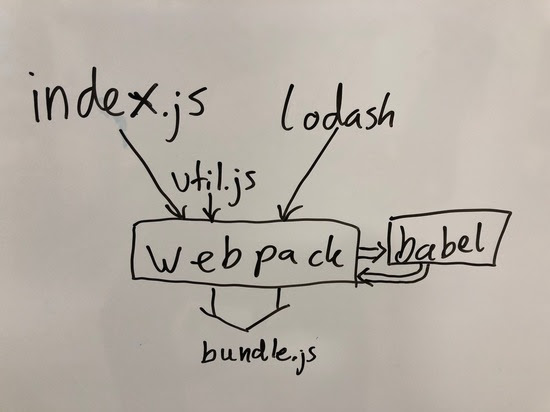 index.js
lodash
util.js
webpack
babel
bundle.js